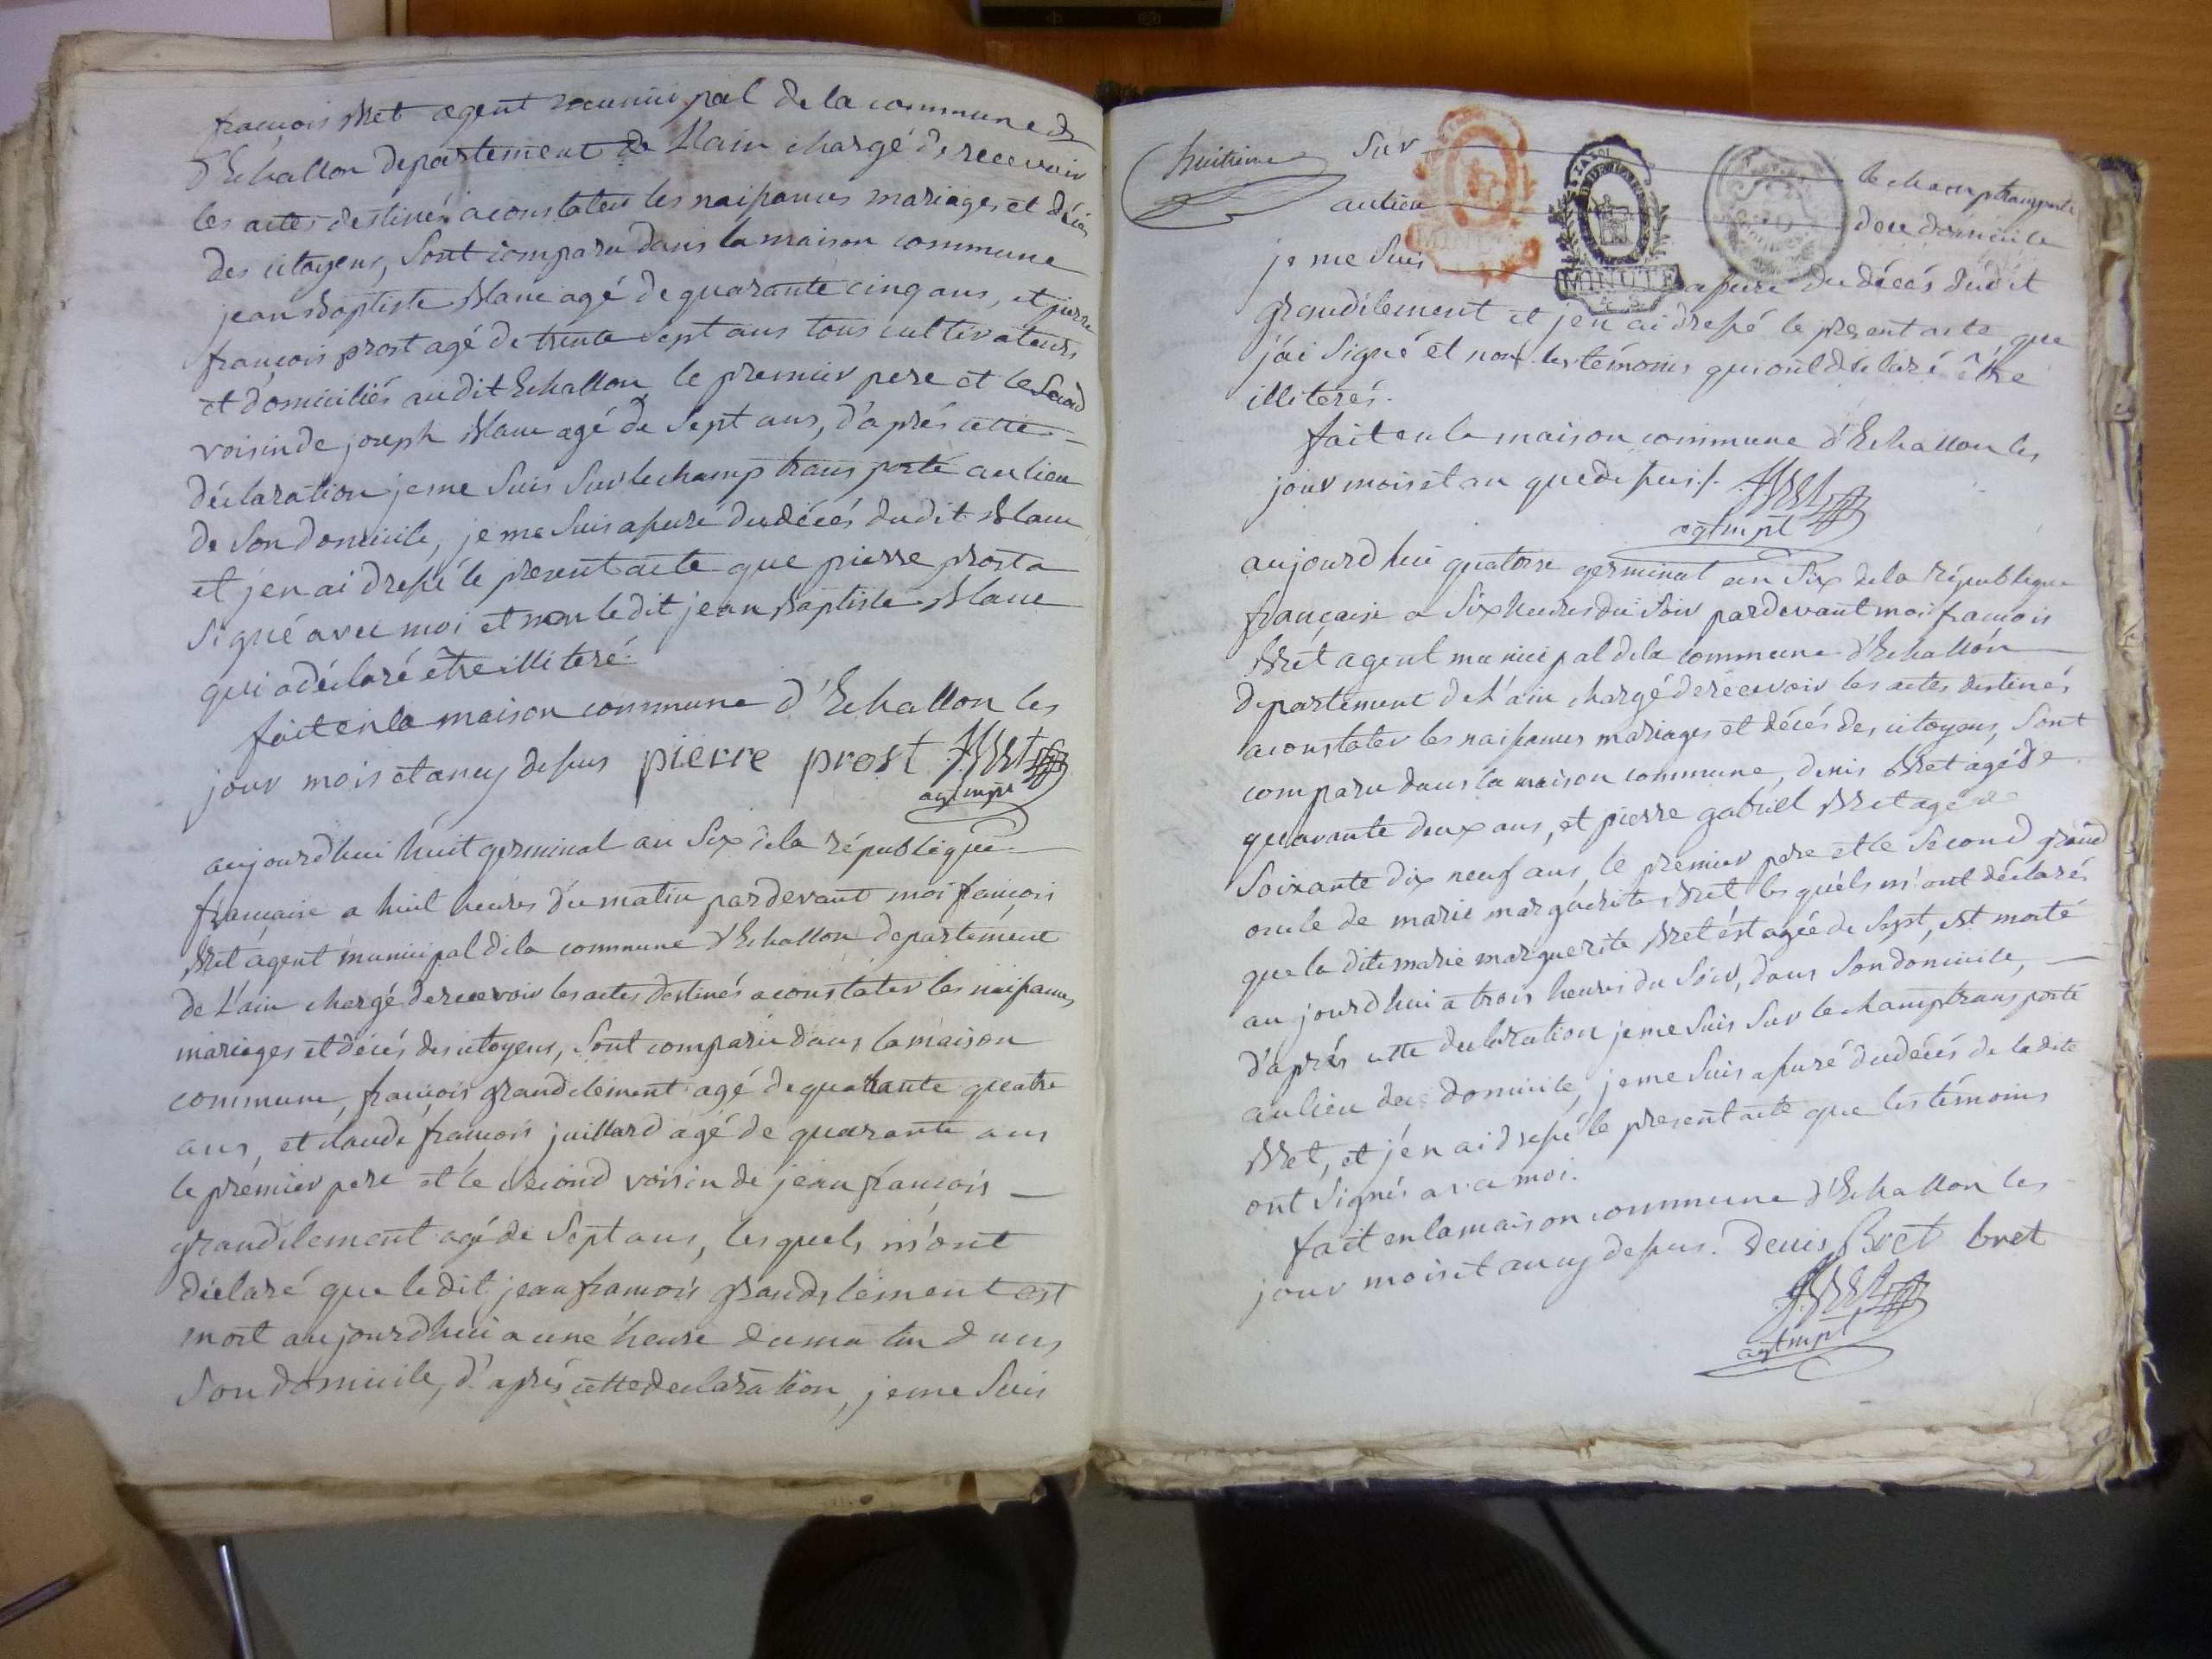 françois Bret agent municipal de la commune de
d'Echallon departement de l'ain chargé de recevoir
les actes destinés a constater les naissances mariages et décés
des citoyens, sont comparu dans la maison commune
jean Baptiste Blanc agé de quarante cinq ans, et pierre
françois prost agé de trente sept ans tous cultivateurs
et domiciliés audit Echallon le premier pere et le second
voisin de joseph Blanc agé de sept ans, d'aprés cette
déclaration je me suis sur le champ transporté au lieu
de son domicile, je me suis assuré du décés dudit Blanc
et j'en ai dressé le present acte que pierre prost a
signé avec moi et non ledit jean Baptiste Blanc
qui a déclaré être illiteré.
fait en la maison commune d'Echallon les
jour mois et an cy dessus pierre prost F Bret
agt mpl
aujourdhui huit germinal an six de la république
française a huit heures du matin pardevant moi françois
Bret agent municipal de la commune d'Echallon departement
de l'ain chargé de recevoir les actes destinés a constater les naissances
mariages et décés des citoyens, sont comparu dans la maison
commune, françois grandclément agé de quarante quatre
ans, et claude françois juillard agé de quarante ans
le premier pere et le second voisin de jean françois
grandclement agé de sept ans, lesquels m'ont
déclaré que ledit jean françois grandclément est
mort aujourdhui a une heure du matin dans
son domicile, d'aprés cette declaration, je me suis
huitieme sur le champ transporté
au lieu de ce domicile
MINUTE
je me suis assuré du décés dudit
MINUTE
grandclement et j'en ai dressé le present acte, que
j'ai signé et non les témoins qui ont déclaré être
illiterés.
fait en la maison commune d'Echallon les
jour mois et an que dessus ./. F Bret
agt mpl
aujourdhui quatorse germinal an six de la république
française a six heures du soir pardevant moi françois
Bret agent municipal de la commune d'Echallon
departement de l'ain chargé de recevoir les actes destinés
a constater les naissances mariages et décés des citoyens, sont
comparu dans la maison commune, denis Bret agé de
quarante deux ans, et pierre gabriel Bret agé de
soixante dix neuf ans, le premier pere et le second grand
oncle de marie marguerite Bret, lesquels m'ont déclarés
que la dite marie marguerite Bret est agée de sept, est morte
aujourdhui a trois heures du soir, dans son domicile,
d'aprés cette declaration je me suis sur le champ transporté
au lieu de ce domicile, je me suis assuré du décés de ladite
Bret, et j'en ai dressé le present acte que les témoins
ont signés avec moi.
fait en la maison commune d'Echallon les
jour mois et an cy dessus. Denis Bret bret
F Bret
agt mpl